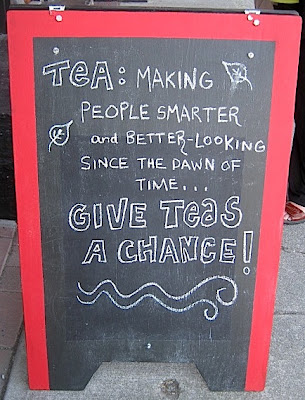 TEA: MAKING
PEOPLE SMARTER
and BETTER-LOOKING
SINCE THE DAWN OF
TIME...
GIVE TEAS
A CHANCE!